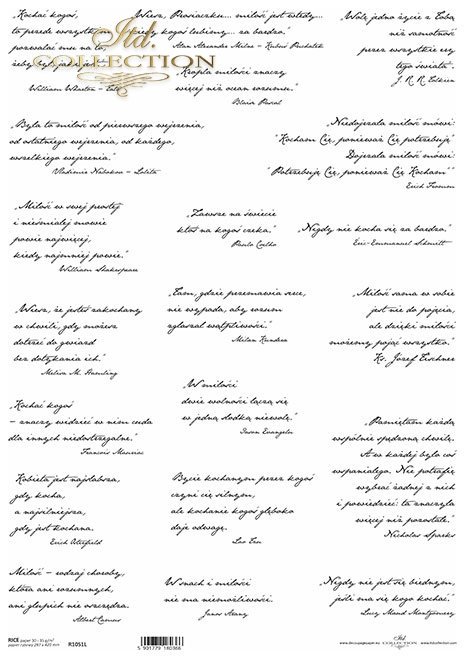 „Kochać kogoś,
to przede wszystkim
pozwalać mu na to,
żeby był jaki jest."
William Wharton - Tato
„Wiesz, Prosiaczku... miłość jest wtedy...
kiedy kogoś lubimy... za bardzo."
Alan Alexander Milne - Kubuś Puchatek
„Kropla miłości znaczy
więcej niż ocean rozumu."
Blaise Pascal
„Wolę jedno życie z Tobą
niż samotność
przez wszystkie ery
tego świata."
J. R. R. Tolkien
Itd.
COLLECTION
„Była to miłość od pierwszego wejrzenia,
od ostatniego wejrzenia, od każdego,
wszelkiego wejrzenia."
Vladimir Nabokov - Lolita
„Niedojrzała miłość mówi:
"Kocham Cię, ponieważ Cię potrzebuję"
Dojrzała miłość mówi:
"Potrzebuję Cię, ponieważ Cię Kocham""
Erich Fromm
„Miłość w swej prostej
i nieśmiałej mowie
powie najwięcej,
kiedy najmniej powie."
William Shakespeare
„Zawsze na świecie
ktoś na kogoś czeka."
Paulo Coelho
„Nigdy nie kocha się za bardzo."
Eric-Emmanuel Schmitt
„Wiesz, że jesteś zakochany
w chwili, gdy możesz
dotrzeć do gwiazd
bez dotykania ich."
Melisa M. Hamling
„Tam, gdzie przemawia serce,
nie wypada, aby rozum
zgłaszał wątpliwości."
Milan Kundera
„Miłość sama w sobie
jest nie do pojęcia,
ale dzięki miłości
możemy pojąć wszystko."
Ks. Józef Tischner
„W miłości
dwie wolności łączą się
w jedną słodką niewolę."
„Kochać kogoś
- znaczy widzieć w nim cuda
dla innych niedostrzegalne."
Francois Mauriac
„Pamiętam każdą
wspólnie spędzoną chwilę.
A w każdej było coś
wspaniałego. Nie potrafię
wybrać żadnej z nich
i powiedzieć: ta znaczyła
więcej niż pozostałe."
Nicholas Sparks
Kobieta jest najsłabsza,
gdy kocha,
a najsilniejsza,
gdy jest kochana.
Erich Osterfield
Bycie kochanym przez kogoś
czyni cię silnym,
ale kochanie kogoś głęboko
daje odwagę.
Lao Tzu
Miłość - rodzaj choroby,
która ani rozumnych,
ani głupich nie oszczędza.
Albert Camus
W snach i miłości
nie ma niemożliwości.
Janos Arany
„Nigdy nie jest się biednym,
jeśli ma się kogo kochać."
Lucy Maud Montgomery
RICE paper 30 - 35 g/m²
papier ryżowy 297 x 420 mm
R1051L
5 901779 180366
Itd.
COLLECTION